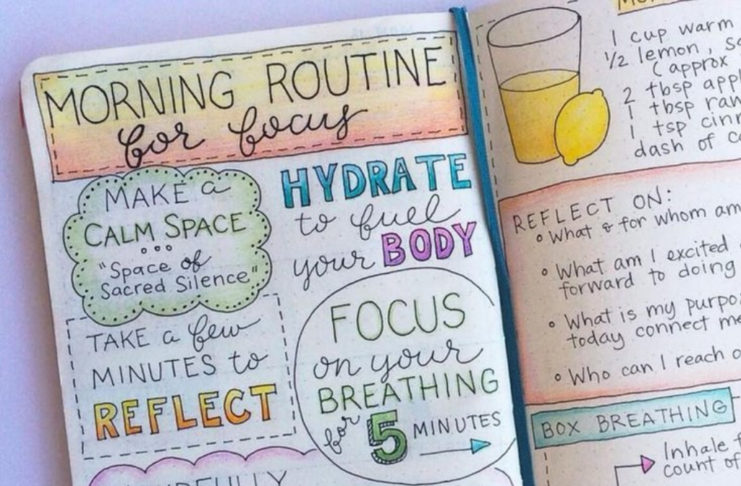 MORNING ROUTINE
for focus
MAKE a
CALM SPACE
"Space of
Sacred Silence"
HYDRATE
to fuel
your BODY
TAKE a few
MINUTES to
REFLECT
FOCUS
on your
BREATHING
for 5 MINUTES
1 cup warm
1/2 lemon,
(approx
2 tbsp
1 tbsp
1 tsp
dash of
REFLECT ON:
• What & for whom am
• What am I excited
forward to doing
• What is my
today connect
• Who can I reach
BOX BREATHING
Inhale
count of